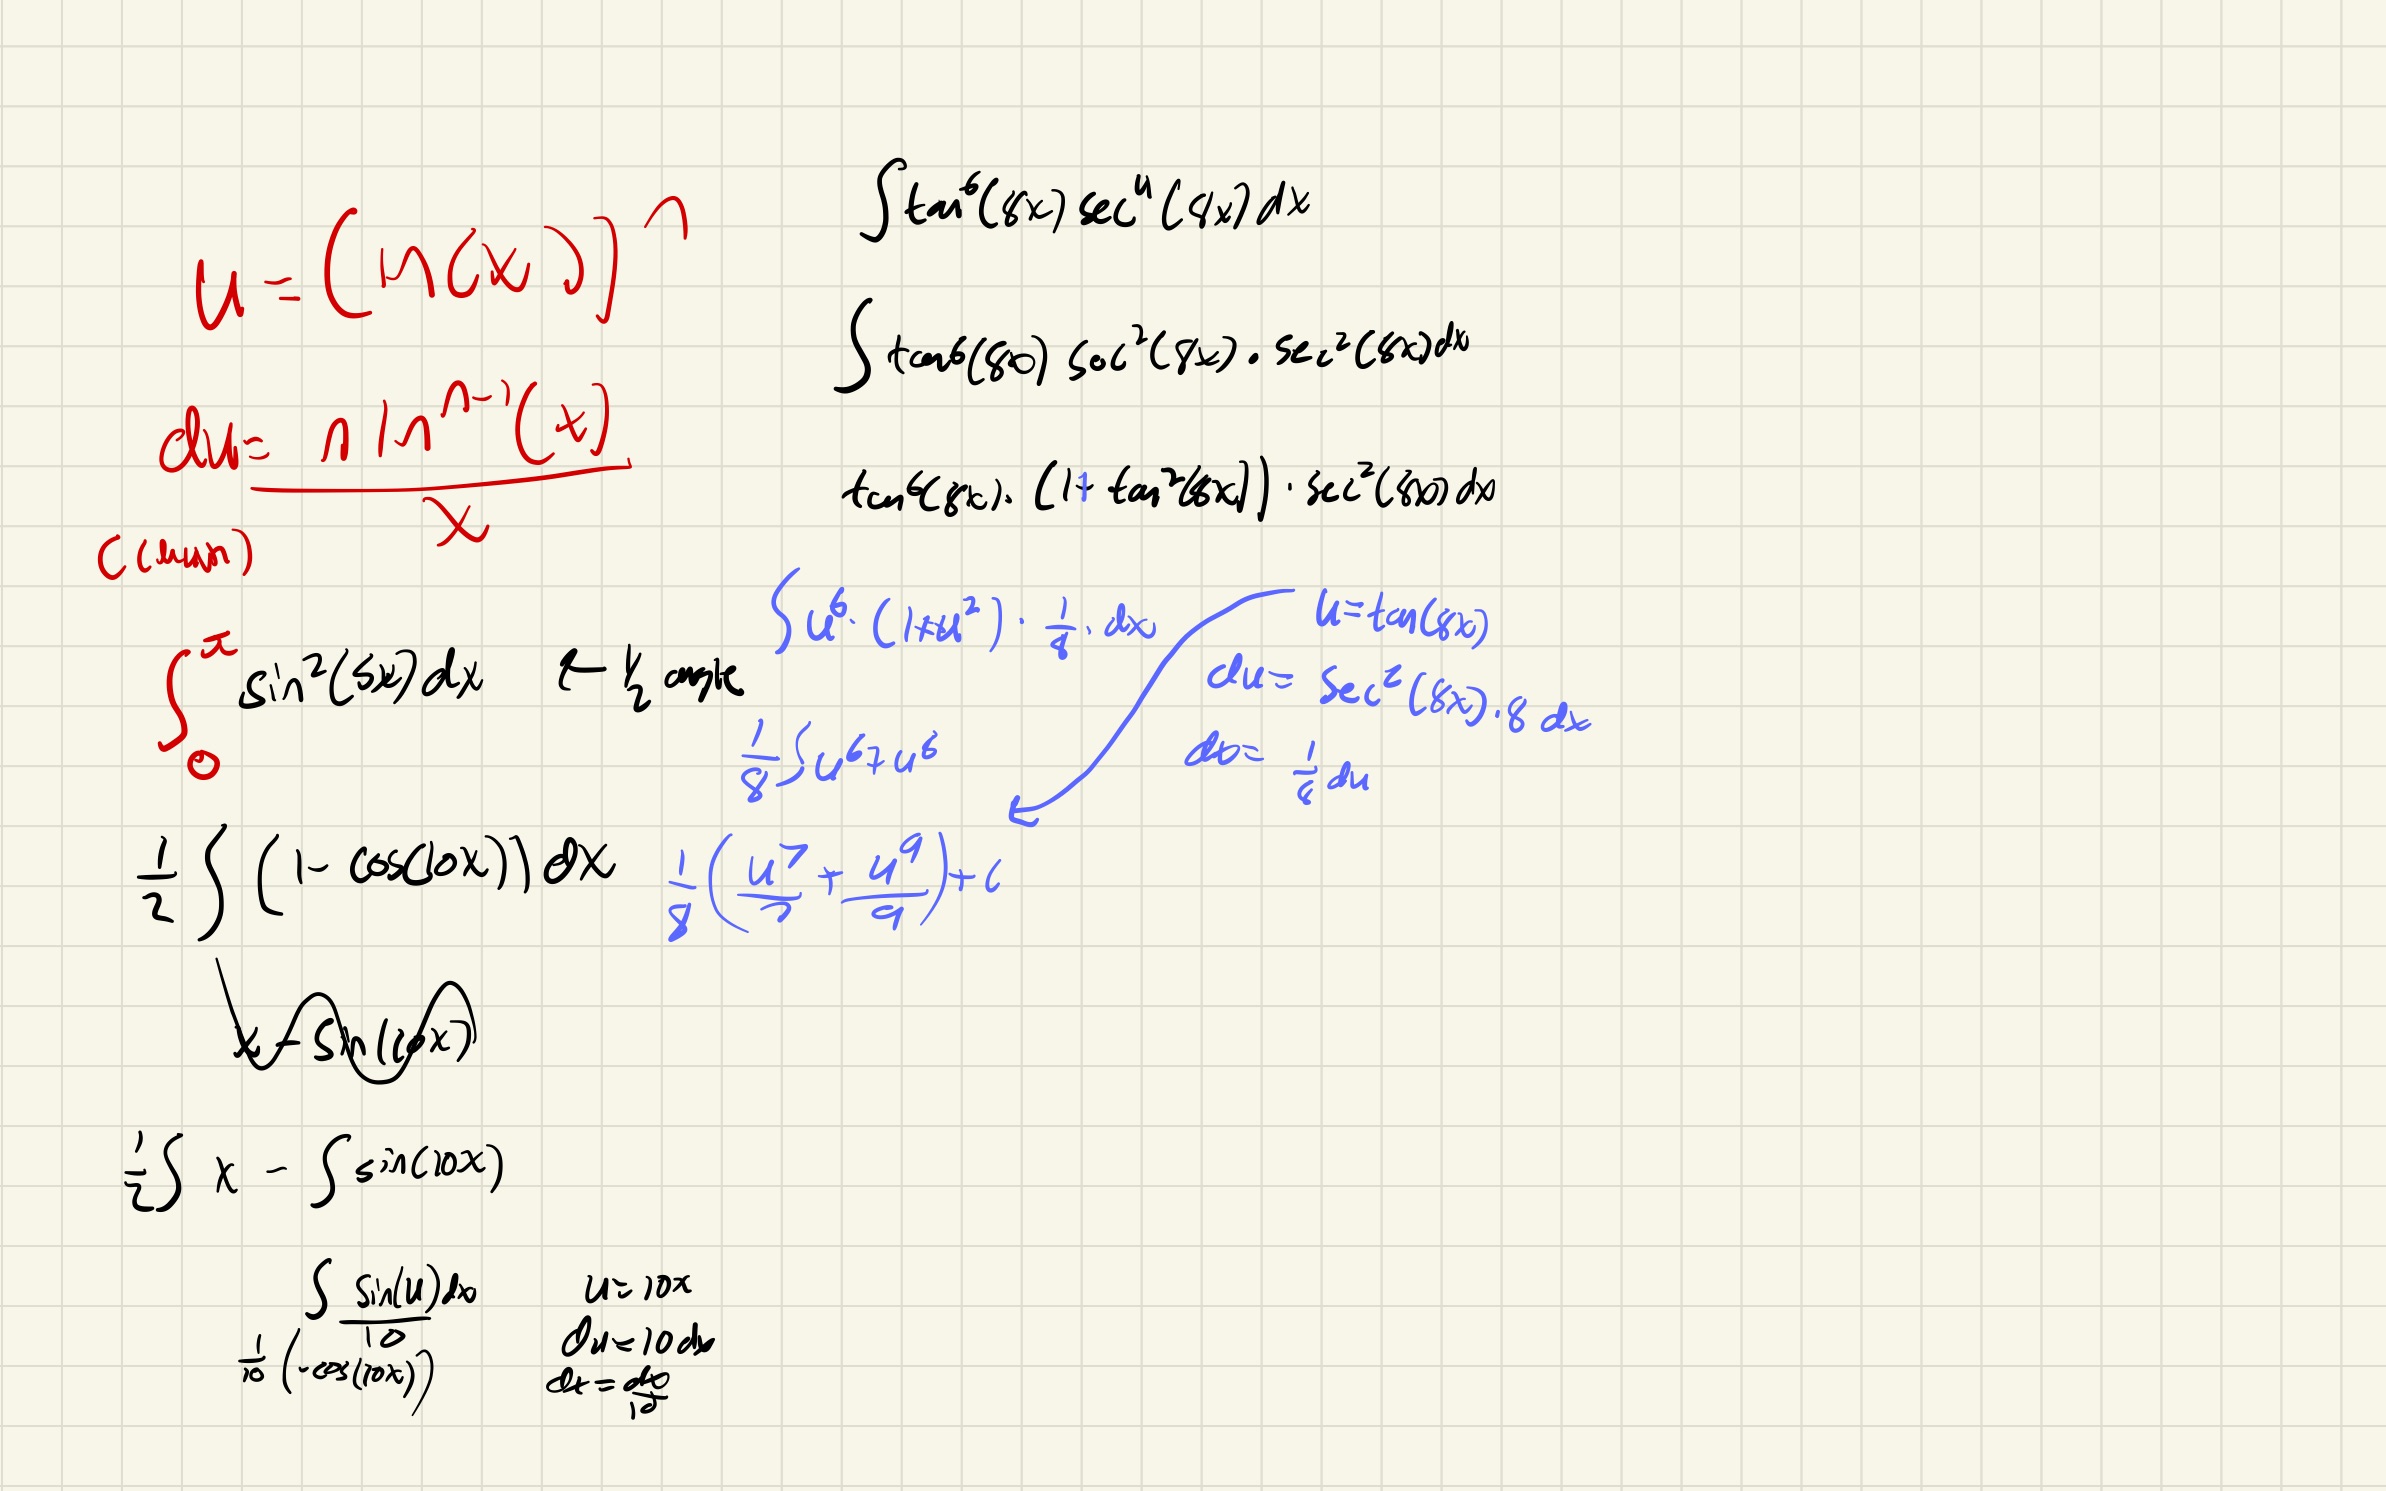 u = (ln(x))^n
du = n ln^{n-1}(x) / x
∫_0^π sin²(5x) dx ← ½ angle
1/2 ∫ (1 - cos(10x)) dx
x - sin(10x)
1/2 ∫ x - ∫ sin(10x)
∫ sin(u) dx / 10
1/10 (-cos(10x))
u = 10x
du = 10 dx
dx = du/10
∫ tan⁶(8x) sec⁴(8x) dx
∫ tan⁶(8x) sec²(8x) · sec²(8x) dx
tan⁶(8x) · (1 + tan²(8x)) · sec²(8x) dx
∫ u⁶ · (1 + u²) · 1/8 · dx
u = tan(8x)
du = sec²(8x) · 8 dx
= 1/8 du
1/8 ∫ u⁶ + u⁸
1/8 (u⁷/7 + u⁹/9) + C